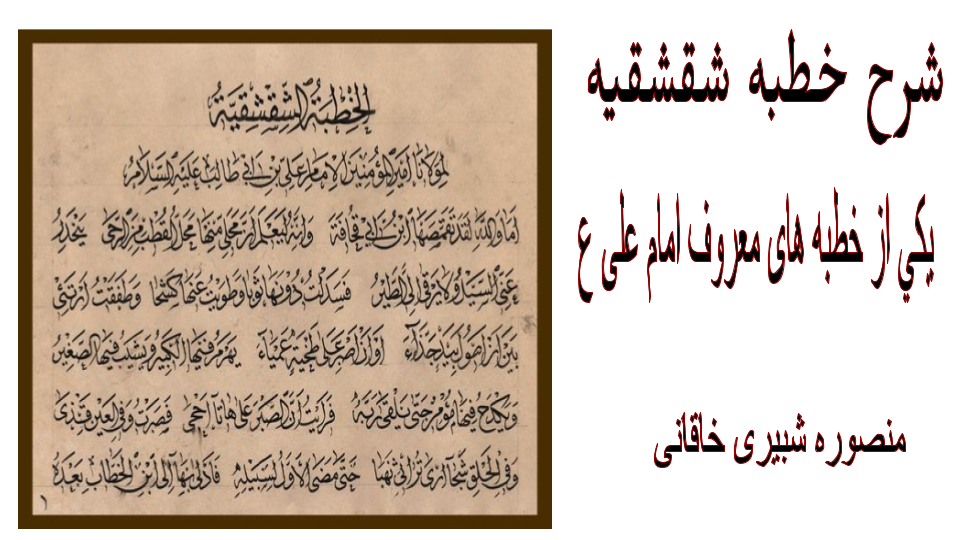 شرح خطبه شقشقیه
یکی از خطبه های معروف امام علی ع
منصوره شبیری خاقانی
الخُطْبَةُ الشِّقْشِقِيَّةُ
لِمَوْلَانَا أَمِيرِ الْمُؤْمِنِينَ الْإِمَامِ عَلِيِّ بْنِ أَبِي طَالِبٍ عَلَيْهِ السَّلَامُ
أَمَا وَاللَّهِ لَقَدْ تَقَمَّصَهَا ابْنُ أَبِي قُحَافَةَ وَإِنَّهُ لَيَعْلَمُ أَنَّ مَحَلِّي مِنْهَا مَحَلُّ الْقُطْبِ مِنَ الرَّحَى يَنْحَدِرُ
عَنِّي السَّيْلُ وَلَا يَرْقَى إِلَيَّ الطَّيْرُ فَسَدَلْتُ دُونَهَا ثَوْبًا وَطَوَيْتُ عَنْهَا كَشْحًا وَطَفِقْتُ أَرْتَئِي
بَيْنَ أَنْ أَصُولَ بِيَدٍ جَذَّاءَ أَوْ أَصْبِرَ عَلَى طَخْيَةٍ عَمْيَاءَ يَهْرَمُ فِيهَا الْكَبِيرُ وَيَشِيبُ فِيهَا الصَّغِيرُ
وَيَكْدَحُ فِيهَا مُؤْمِنٌ حَتَّى يَلْقَى رَبَّهُ فَرَأَيْتُ أَنَّ الصَّبْرَ عَلَى هَاتَا أَحْجَى فَصَبَرْتُ وَفِي الْعَيْنِ قَذًى
وَفِي الْحَلْقِ شَجًا أَرَى تُرَاثِي نَهْبًا حَتَّى مَضَى الْأَوَّلُ لِسَبِيلِهِ فَأَدْلَى بِهَا إِلَى ابْنِ الْخَطَّابِ بَعْدَهُ
١